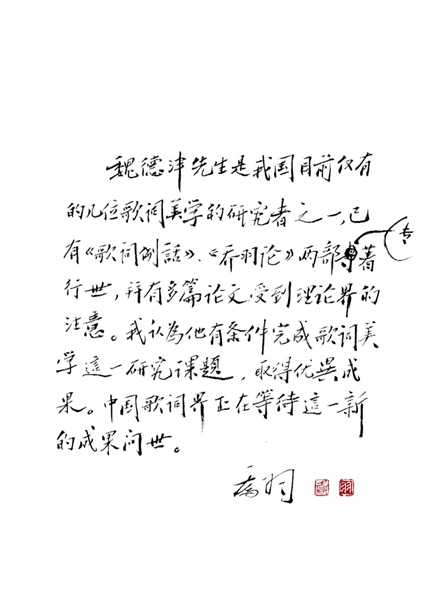 魏德泮先生是我国目前仅有
的几位歌词美学的研究者之一,已
有《歌词例話》、《乔羽论》两部专著
行世,并有多篇论文受到理论界的
注意。我认为他有条件完成歌词美
学這一研究课题,取得优異成
果。中国歌词界正在等待這一新
的成果问世。
乔羽